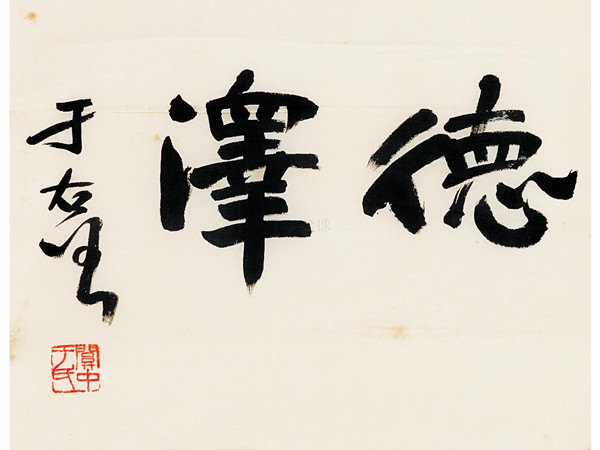 德澤
于右任
關中于氏